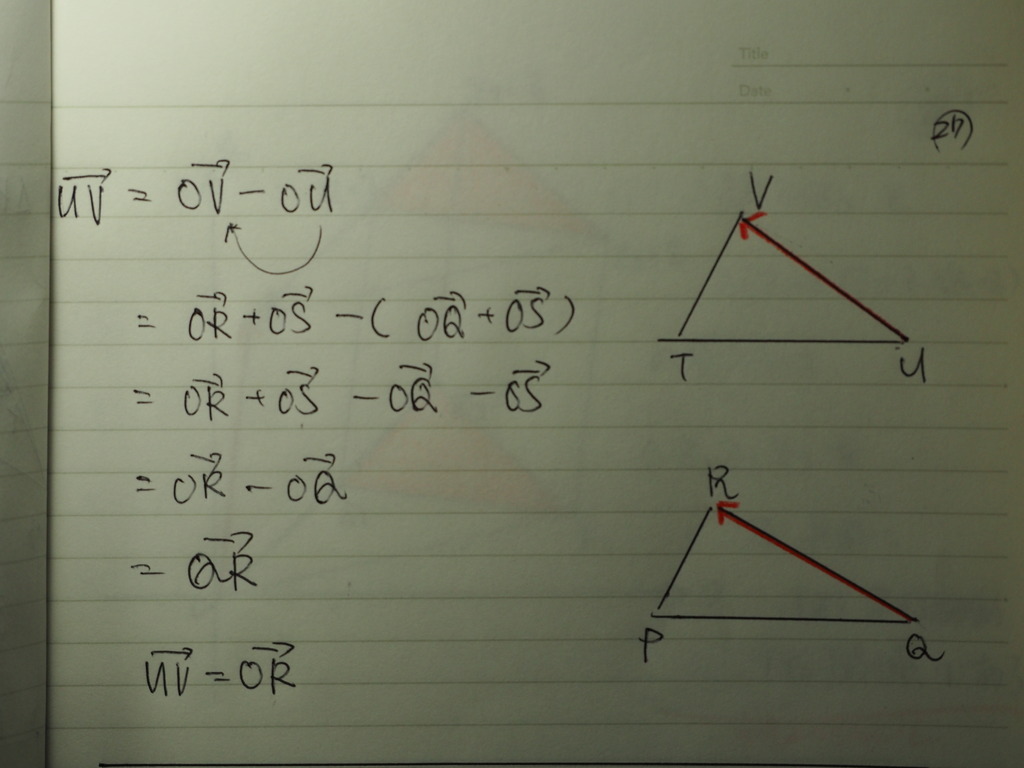 Title
Date
(27)
UV = OV - OU
= OR + OS - ( OQ + OS )
= OR + OS - OQ - OS
= OR - OQ
= QR
UV = OR
V
T
U
R
P
Q